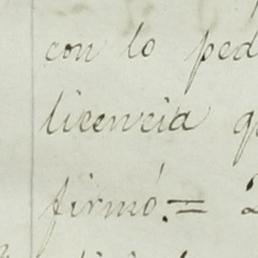 con lo
licencia
firmó.=